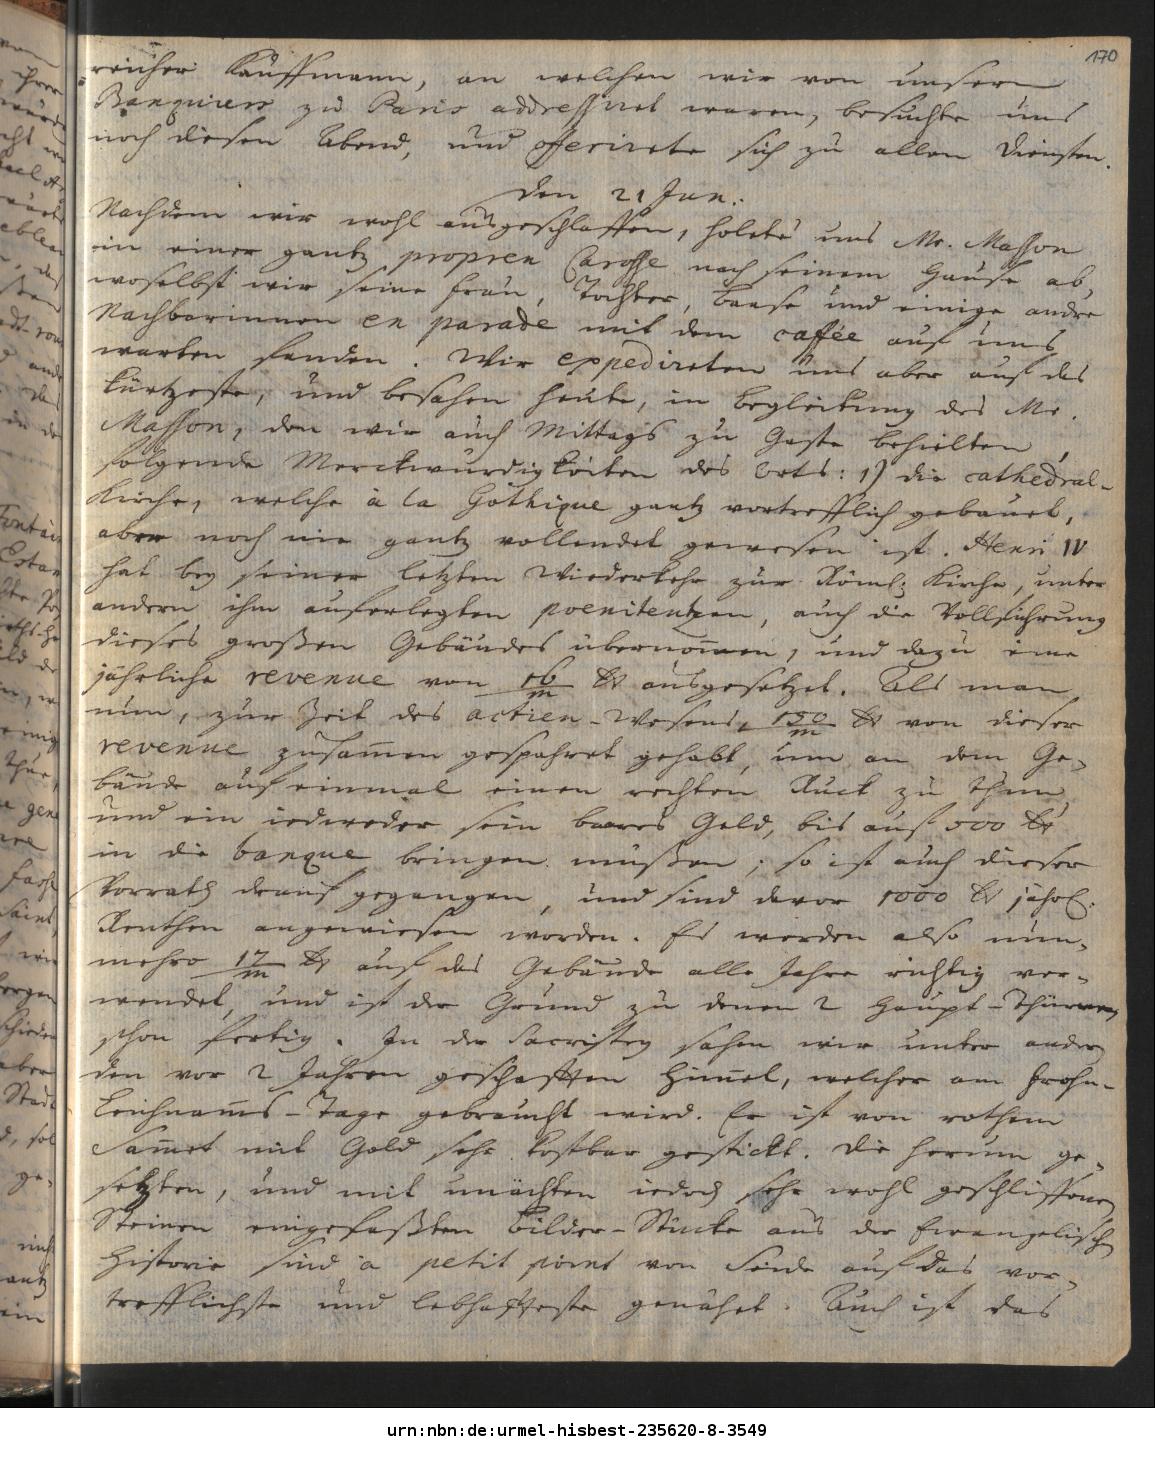 170
reicher Kauffmann, an welchen wir von unsern
Banquiers zu Paris addressiret waren, besuchte uns
noch diesen Abend, und offerirete sich zu allen Diensten.
den 21 Jun.
Nachdem wir wohl ausgeschlaffen, holete uns Mr. Masson
in einer gantz propren Carosse nach seinem Hause ab,
woselbst wir seine Frau, Tochter, Baase und einige andre
Nachbarinnen en parade mit dem caffée auf uns
warten fanden. Wir expedireten uns aber auf das
kürtzeste, und besahen heute, in Begleitung des Mr.
Masson, den wir auch Mittags zu Gaste behielten,
folgende Merckwürdigkeiten des Orts: 1) die cathedral-
Kirche, welche à la Gothique gantz vortrefflich gebauet,
aber noch nie gantz vollendet gewesen ist. Henri IV
hat bey seiner letzten Wiederkehr zur Röml: Kirche, unter
andern ihm auferlegten poenitentzen, auch die Vollführung
dieses großen Gebäudes übernom̄en, und dazu eine
jährliche revenue von 16/m ausgesetzet. Als man
nun, zur Zeit des actien-Wesens, 150/m von dieser
revenue zusam̄en gespahret gehabt, um an dem Ge-
bäude auf einmal einen rechten Ruck zu thun,
und ein iedweder sein baares Geld, bis auf 500
in die banque bringen müßen; so ist auch dieser
Vorrath drauf gegangen, und sind davor 1000 jährl:
Renthen angewiesen worden. Es werden also nun-
mehro 17/m auf das Gebäude alle Jahre richtig ver-
wendet, und ist der Grund zu denen 2 Haupt-Thürmen
schon fertig. In der Sacristey sahen wir unter andern
den vor 2 Jahren geschafften Him̄el, welcher am Frohn-
leichnam̄s-Tage gebraucht wird. Er ist von rothem
Sam̄et mit Gold sehr kostbar gestickt. Die herum ge-
setzten, und mit unächten iedoch sehr wohl geschliffenen
Steinen eingefaßten Bilder-Stücke aus der Evangelischen
Historie sind à petit point von Seide auf das vor-
trefflichste und lebhaffteste genähet. Auch ist das
urn:nbn:de:urmel-hisbest-235620-8-3549